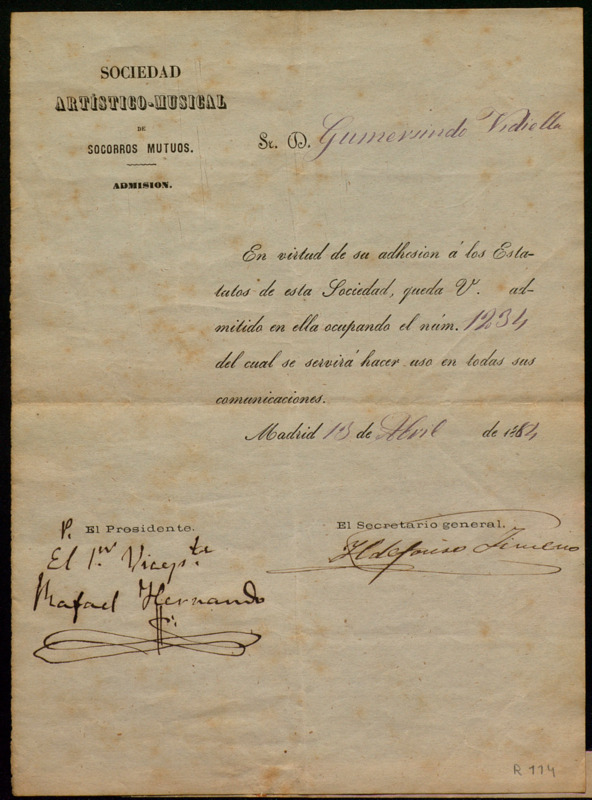 SOCIEDAD
ARTÍSTICO-MUSICAL
DE
SOCORROS MUTUOS.
ADMISION.
Sr. D. Gumersindo Vidiella
En virtud de su adhesion á los Esta-
tutos de esta Sociedad, queda V. ad-
mitido en ella ocupando el núm. 1234
del cual se servirá hacer uso en todas sus
comunicaciones.
Madrid 13 de Abril de 1884
P. El Presidente.
El 1.er Vicep.te
Rafael Hernando
El Secretario general.
Ildefonso Jimeno
R 114